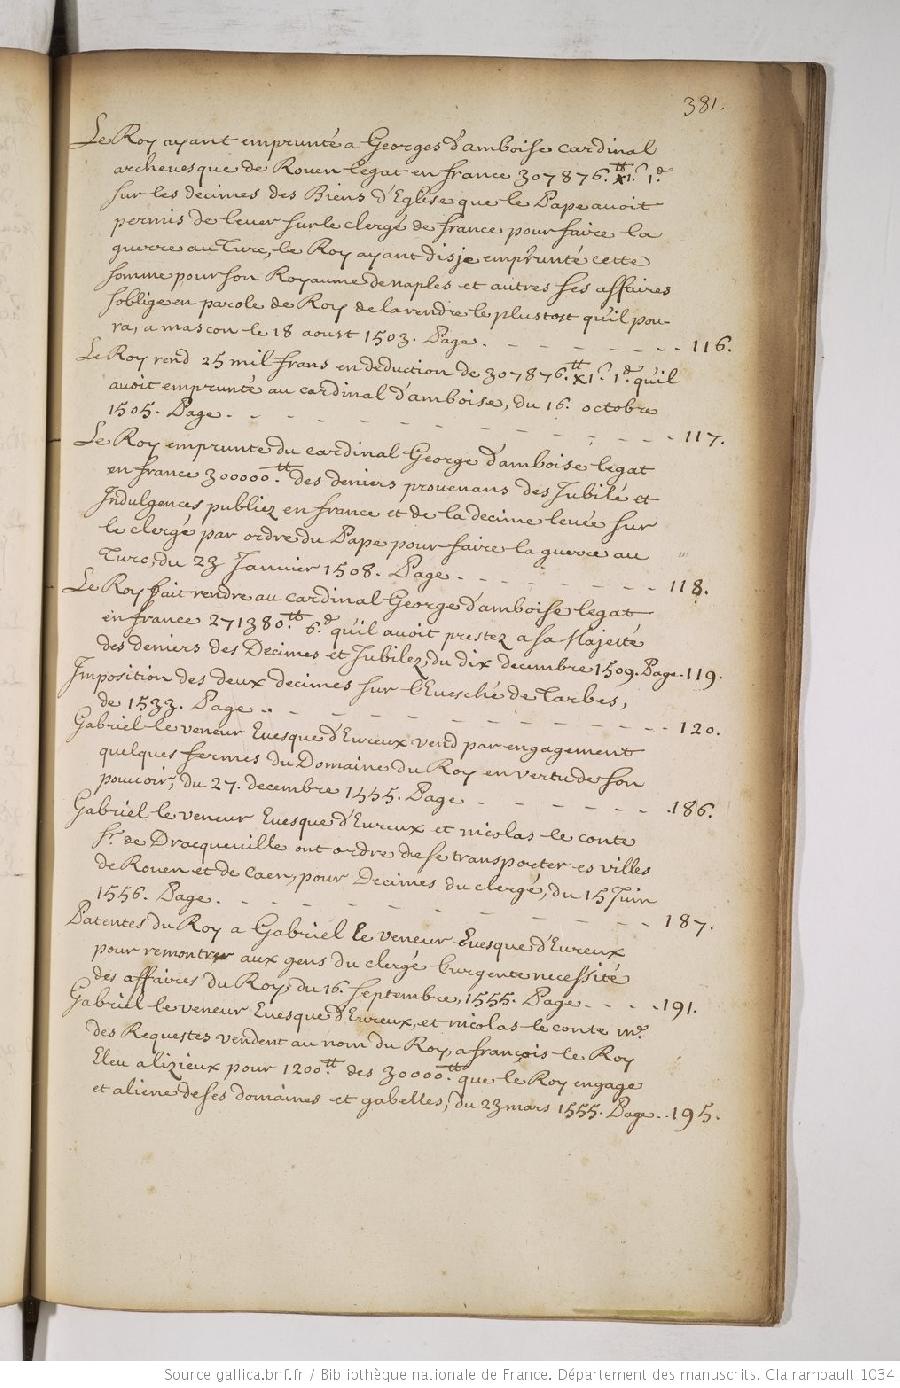 381.
Le Roy ayant emprunté a Georges d'amboise cardinal
archevesque de Rouen legat en france 307876.tt XI.s 1.d
sur les decimes des Biens d'Eglise que le Pape avoit
permis de lever sur le clergé de france, pour faire la
guerre au Turc, le Roy ayant disje emprunté cette
somme pour son Royaume de naples et autres ses affaires
s'oblige en parole de Roy de la rendre le plustost qu'il pou-
ra, a mascon le 18 aoust 1503. Page. - - - - - - - 116.
Le Roy rend 25 mil frans en deduction de 307876.tt XI.s 1.d qu'il
avoit emprunté au cardinal d'amboise, du 16. octobre
1505. Page - - - - - - - - - - - - 117.
Le Roy emprunte du cardinal George d'amboise legat
en france 300000.tt des deniers provenans des Jubilé et
Indulgences publiez en france et de la decime levée sur
le clergé par ordre du Pape pour faire la guerre au
Turc, du 23 Janvier 1508. Page - - - - - - - - 118.
Le Roy fait rendre au cardinal George d'amboise legat
en france 271380.tt 6.d qu'il avoit prestez a sa Majesté
des deniers des Decimes et Jubilez, du dix decembre 1509. Page. 119.
Imposition des deux decimes sur l'Evesché de Tarbes,
de 1533. Page - - - - - - - - - - - - 120.
Gabriel le veneur Evesque d'Evreux vend par engagement
quelques fermes du Domaine du Roy en vertu de son
pouvoir, du 27. decembre 1555. Page - - - - - - - 186.
Gabriel le veneur Evesque d'Evreux et nicolas le conte
sr. de Dracqueville ont ordre de se transporter es villes
de Rouen et de Caen, pour Decimes du clergé, du 15 Juin
1556. Page. - - - - - - - - - - - - 187.
Patentes du Roy a Gabriel le veneur Evesque d'Evreux
pour remontrer aux gens du clergé l'urgente necessité
des affaires du Roy, du 16. septembre, 1555. Page - - - - 191.
Gabriel le veneur Evesque d'Evreux, et nicolas le conte me.
des Requestes vendent au nom du Roy, a françois le Roy
Eleu a lizieux pour 1200.tt des 30000.tt que le Roy engage
et aliene de ses domaines et gabelles, du 23 mars 1555. Page.. 195.
Source gallica.bnf.fr / Bibliothèque nationale de France. Département des manuscrits. Clairambault 1034